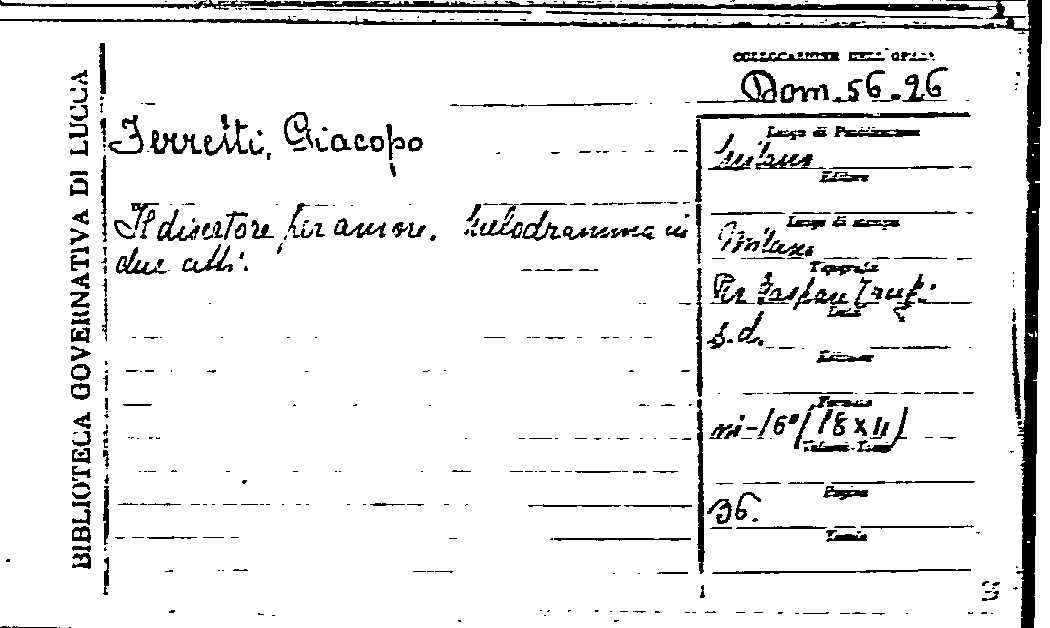 BIBLIOTECA GOVERNATIVA DI LUCCA
COLLOCAZIONE DELL'OPERA
Dom. 56.26
Ferretti, Giacopo
Il disertore per amore. Melodramma in
due atti.
Luogo di Pubblicazione
Milano
Editore
Luogo di stampa
Milano
Tipografia
Per Gaspare Truffi
Data
s.d.
Edizione
Formato
in-16° (18 x 11)
Volumi-Tomi
Pagine
36.
Tavole